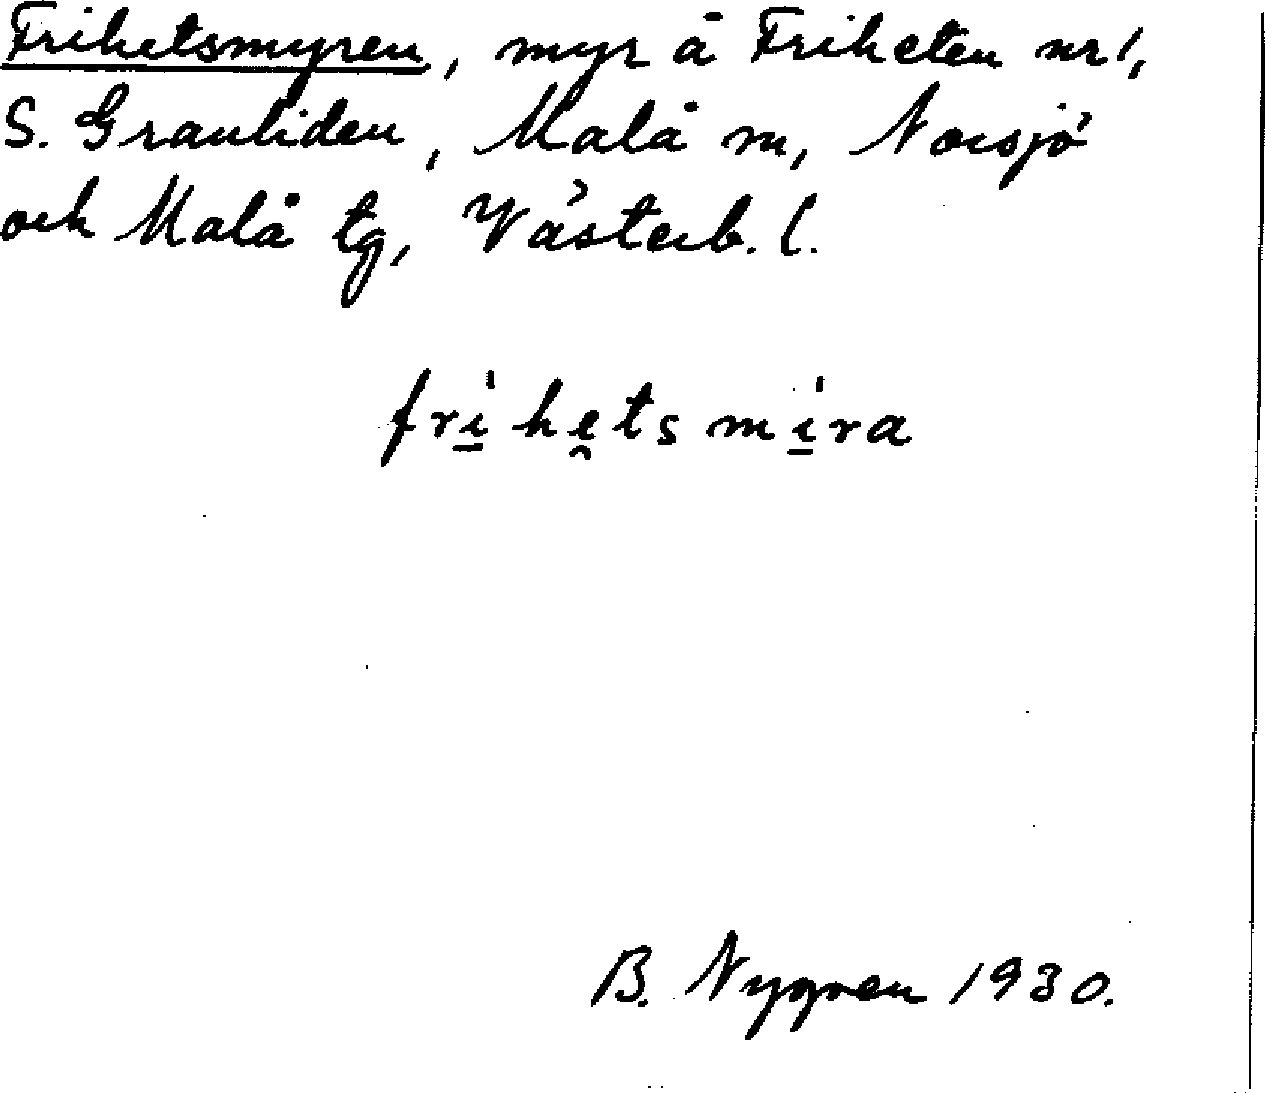 Frihetsmyren, myr å Friheten nr 1,
S. Granliden, Malå sn, Norsjö
och Malå tg, Västerb. l.
frihetsmira
B. Nygren 1930.